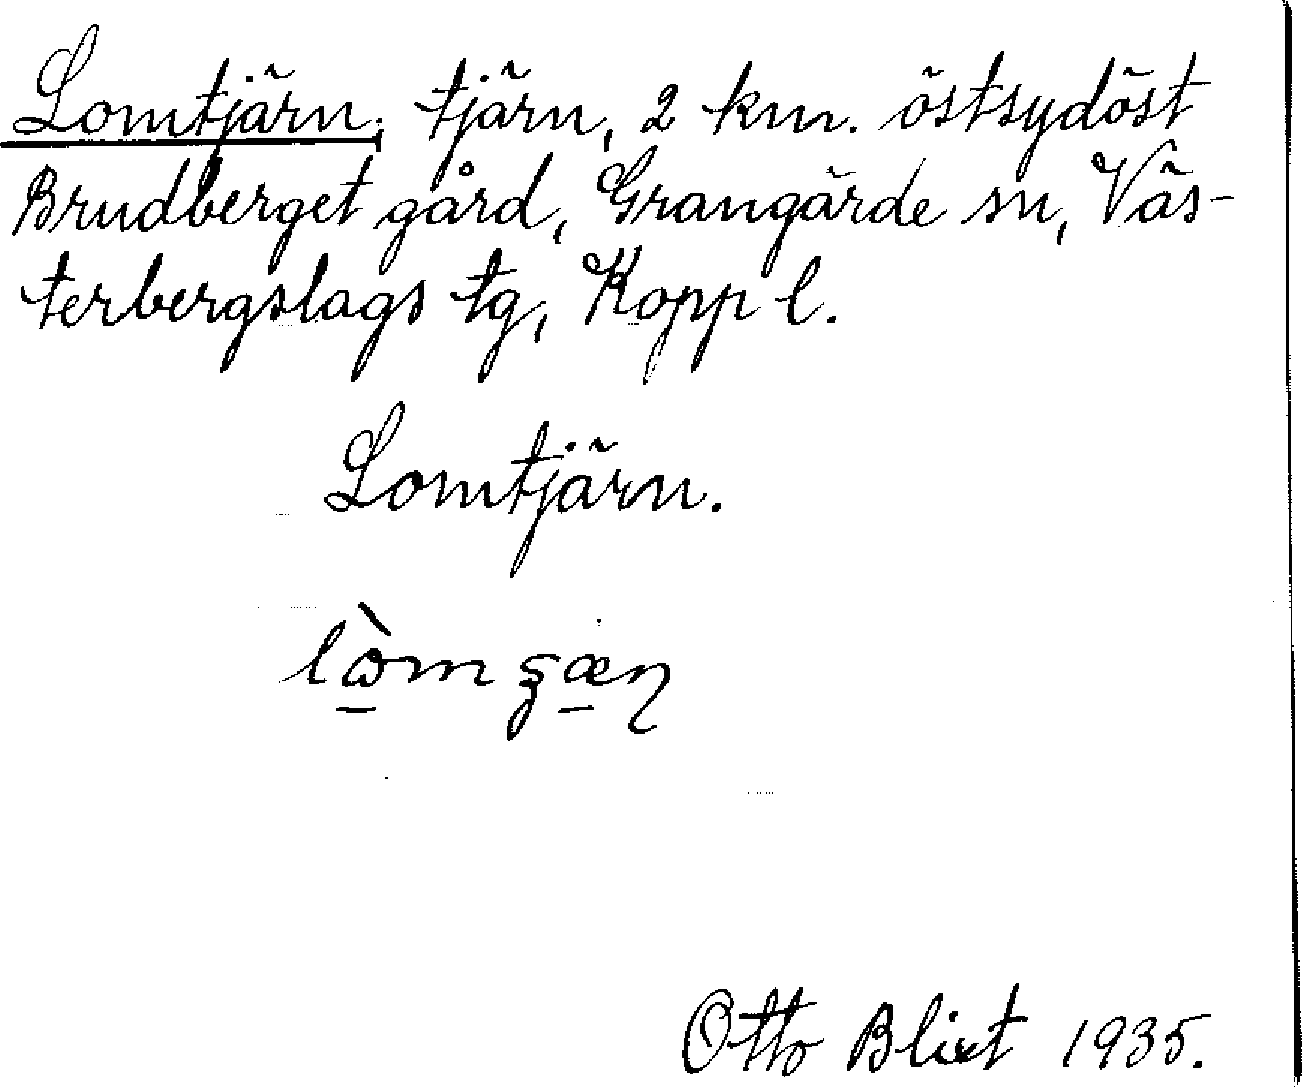 Lomtjärn, tjärn, 2 km. östsydöst
Brudberget gård, Grangärde sn, Väs-
terbergslags tg, Kopp l.
Lomtjärn.
Otto Blixt 1935.